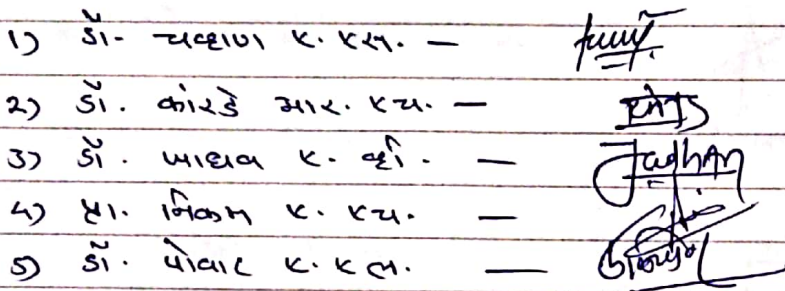 1) डॉ. चव्हाण ए. एस. —
2) डॉ. कोरडे आर. एच. —
3) डॉ. जाधव ए. व्ही. — Jadhav
4) प्रा. निकम ए. एच. —
5) डॉ. पोवार ए. एल. —